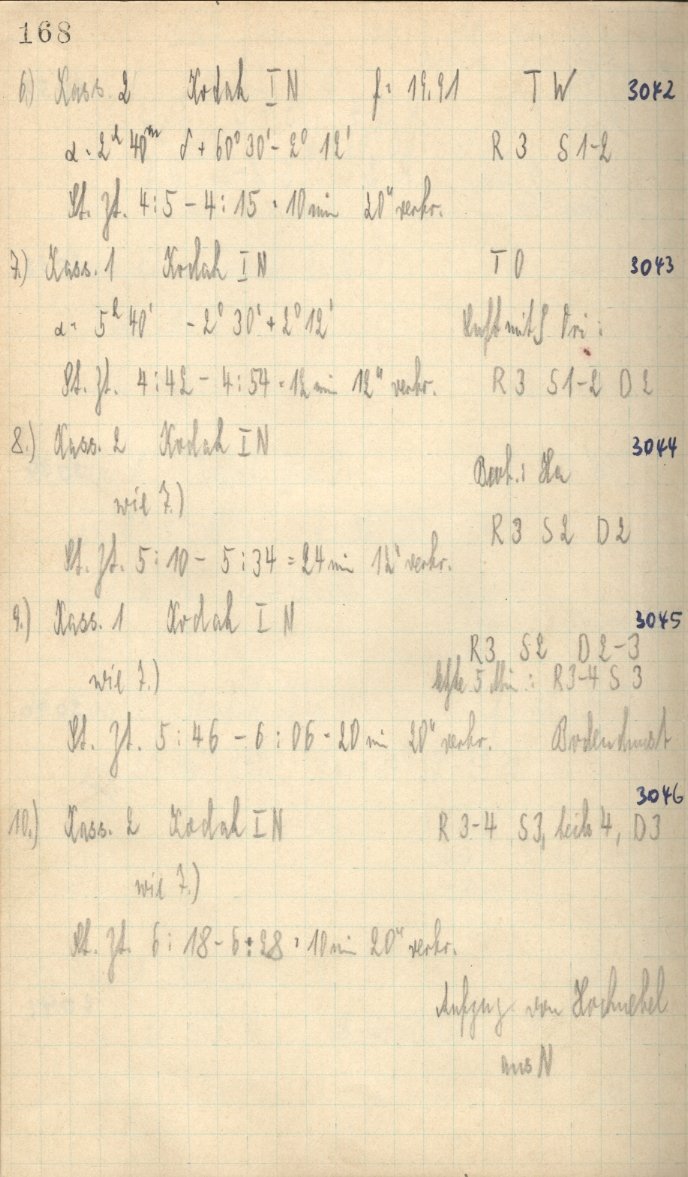 168
6.) Kass. 2 Kodak I N f = 19,91 T W 3042
α = 2ʰ 40ᵐ δ + 60° 30' - 2° 12' R 3 S 1-2
St. Zt. 4:5 - 4:15 = 10 min 20" verbr.
7.) Kass. 1 Kodak I N T O 3043
α = 5ʰ 40' - 2° 30' + 2° 12' Luft mit
St. Zt. 4:42 - 4:54 = 12 min 12" verbr. R 3 S 1-2 D 2
8.) Kass. 2 Kodak I N 3044
Beob.: Ha
wie 7.)
R 3 S 2 D 2
St. Zt. 5:10 - 5:34 = 24 min 12" verbr.
9.) Kass. 1 Kodak I N 3045
R 3 S 2 D 2-3
wie 7.) letzte 5 Min: R 3-4 S 3
St. Zt. 5:46 - 6:06 = 20 min 20" verbr. Bodendunst
3046
10.) Kass. 2 Kodak I N R 3-4 S 3, teils 4, D 3
wie 7.)
St. Zt. 6:18 - 6:28 = 10 min 20" verbr.
Aufzug von Hochnebel
aus N